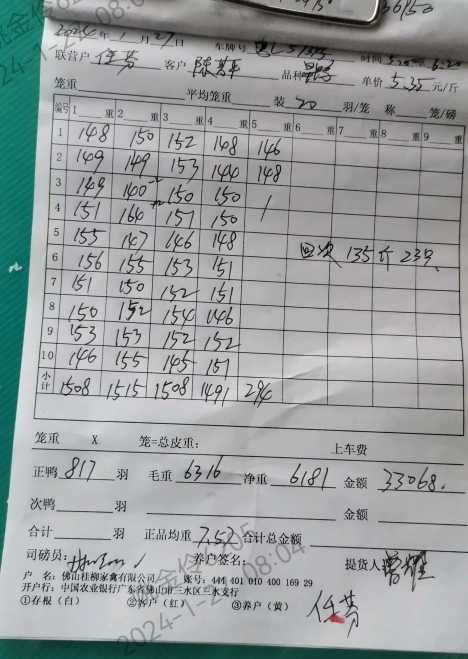 36150
2024年1月27日 车牌号 时间
联营户 任芬 客户 品种 单价 5.35 元/斤
笼重 平均笼重 装 20 羽/笼 称 笼/磅
编号 1 重 2 重 3 重 4 重 5 重 6 重 7 重 8 重 9 重
1 148 150 152 148 146
2 149 149 153 144 148
3 149 140 150 150
4 151 164 151 150
5 155 147 146 148
回次 135斤 23只
6 156 155 153 151
7 151 150 152 151
8 150 152 154 146
9 153 153 152 152
10 146 155 145 151
小计 1508 1515 1508 1491 294
笼重 X 笼=总皮重: 上车费
正鸭 817 羽 毛重 6316 净重 6181 金额 33068.
次鸭 羽 金额
合计 羽 正品均重 7.57 合计总金额
司磅员: 养户签名: 提货人
户 名: 佛山桂柳家禽有限公司 账号: 444 401 010 400 169 29
开户行: 中国农业银行广东省佛山市三水区三水支行
①存根（白） ②客户（红） ③养户（黄）
任芬
2024-1-2 08:04